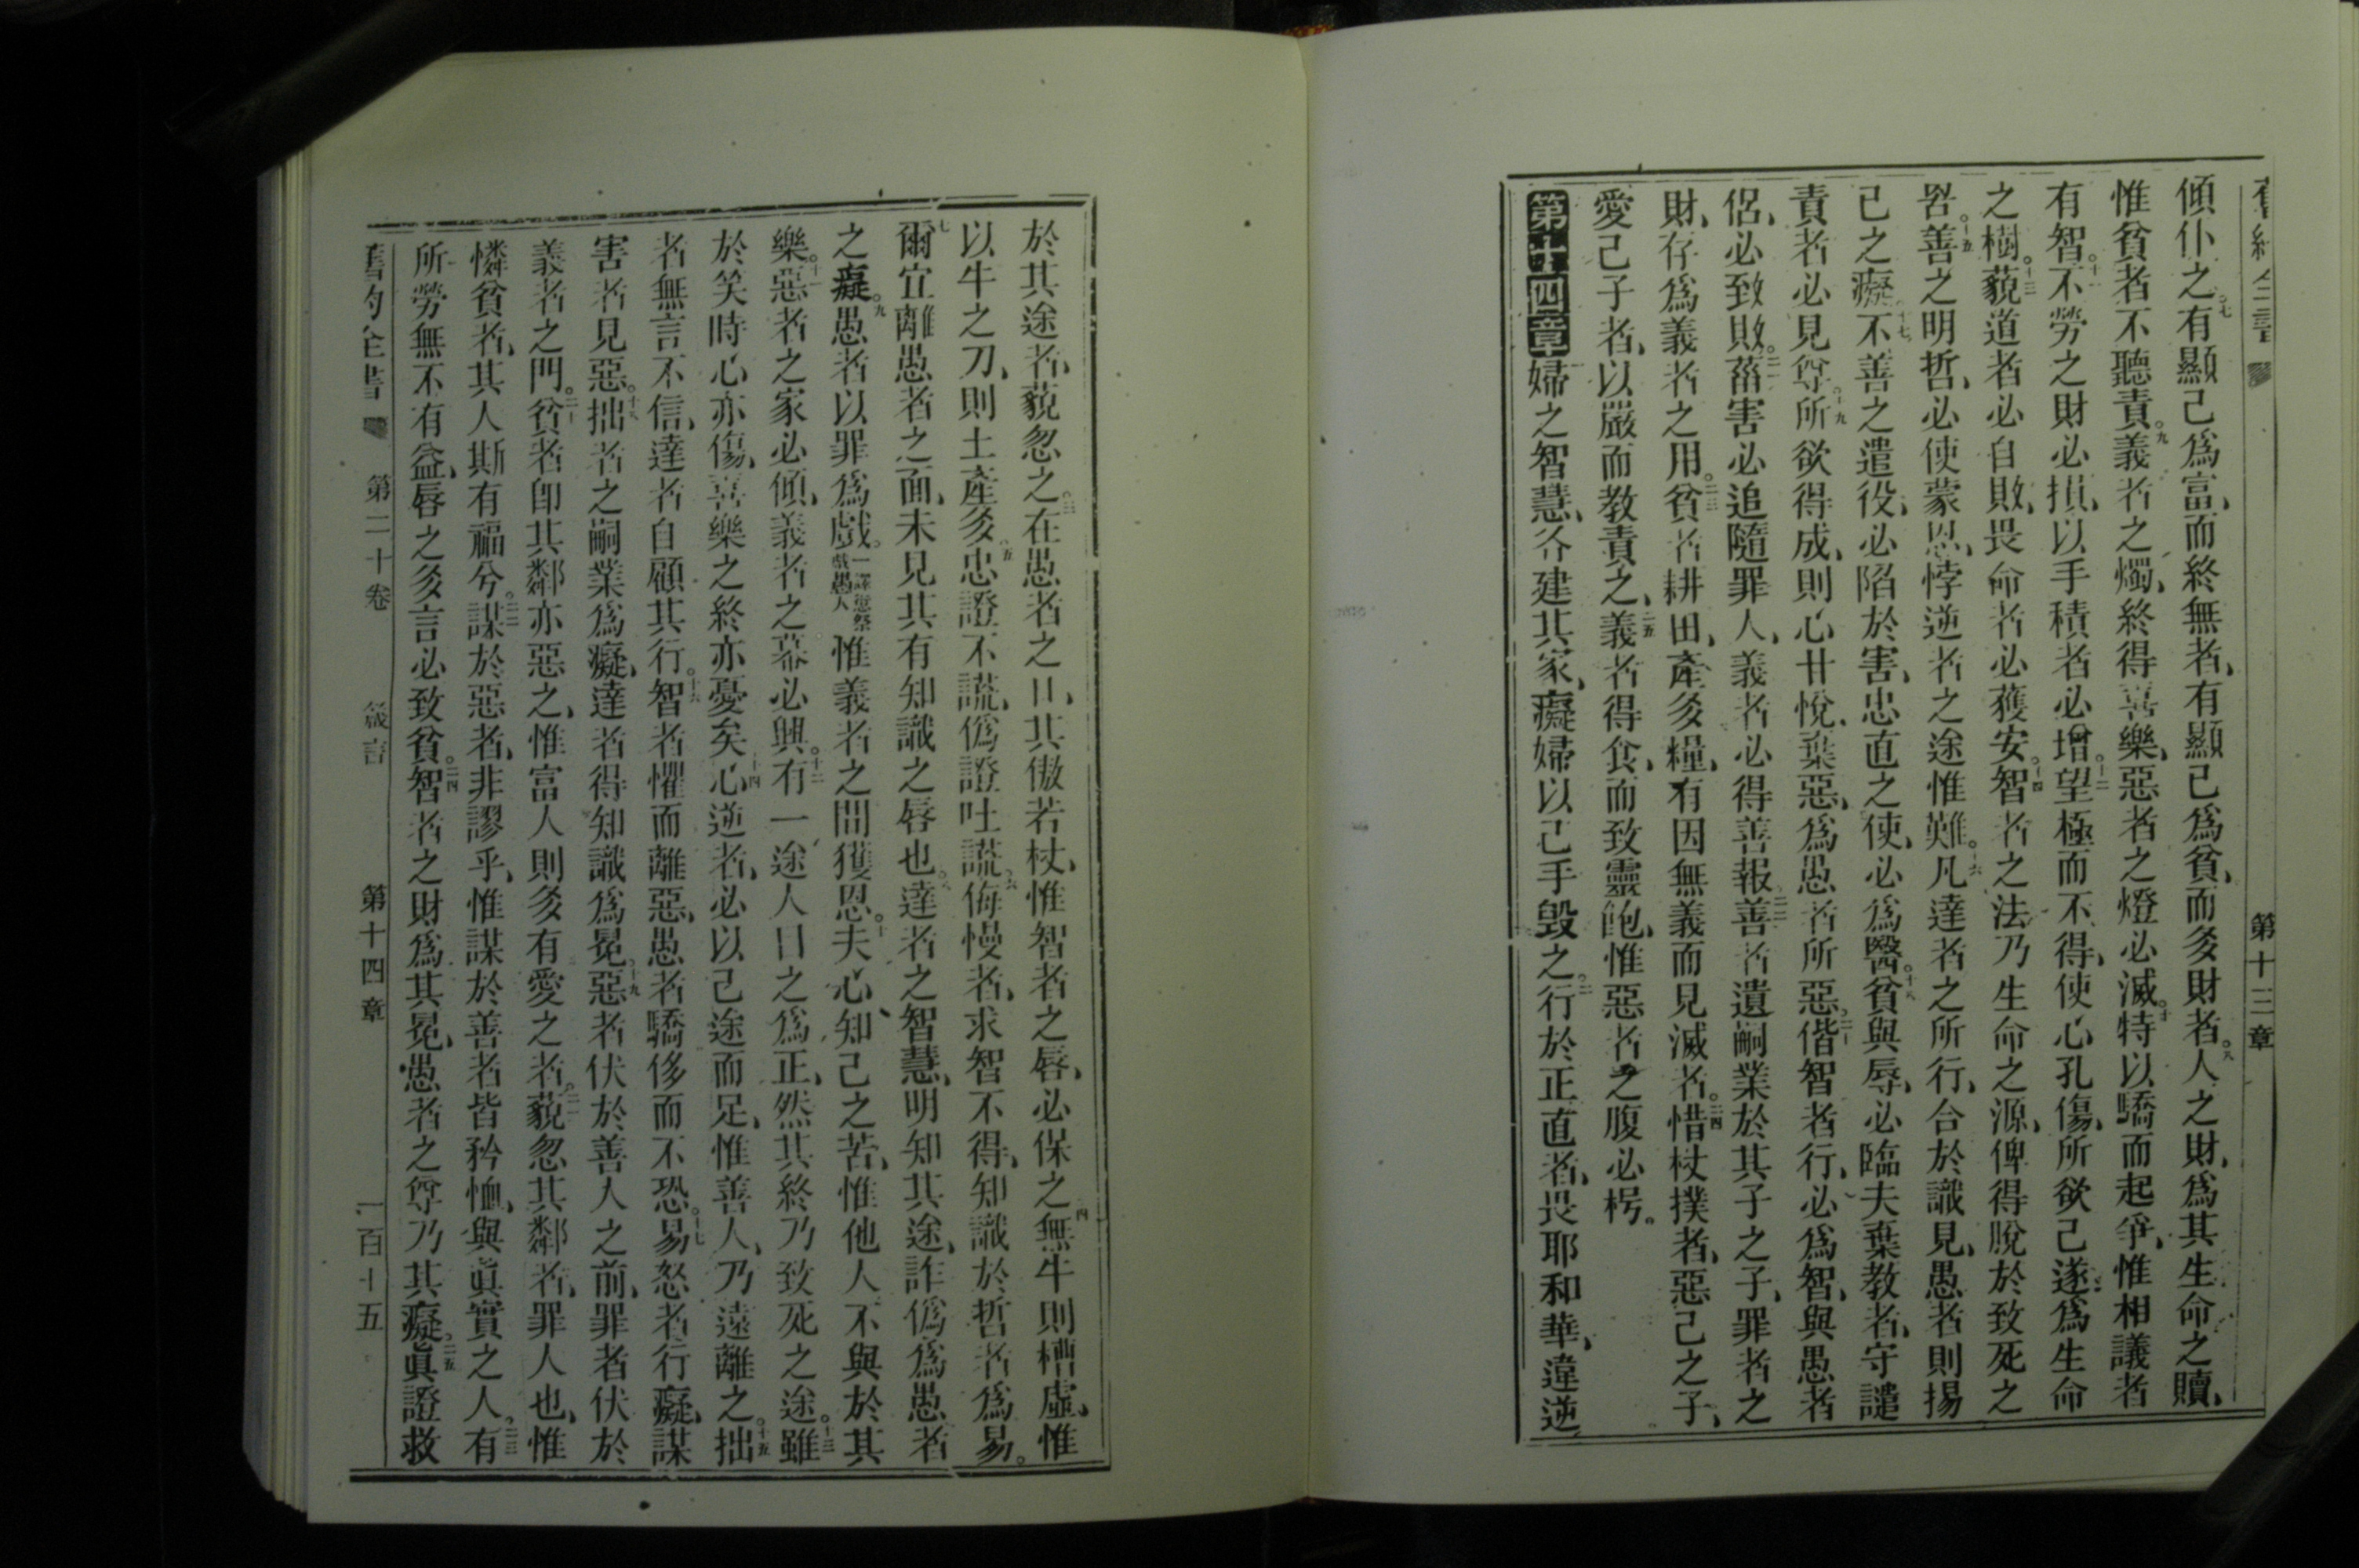 第十三章
傾仆之、七有顯己爲富、而終無者、有顯己爲貧、而多財者。八人之財、爲其生命之贖、
惟貧者不聽責。九義者之燭、終得喜樂、惡者之燈必滅。十特以驕而起爭、惟相議者
有智。十一不勞之財必損、以手積者必增。十二望極而不得、使心孔傷、所欲已遂、爲生命
之樹。十三藐道者必自敗、畏命者必獲安。十四智者之法、乃生命之源、俾得脫於致死之
罟。十五善之明哲、必使蒙恩、悖逆者之途惟難。十六凡達者之所行、合於識見、愚者則揚
己之癡。十七不善之遣役、必陷於害、忠直之使、必爲醫。十八貧與辱、必臨夫棄教者、守譴
責者必見尊。十九所欲得成、則心甘悅、棄惡、爲愚者所惡。二十偕智者行、必爲智、與愚者
侶、必致敗。二一菑害必追隨罪人、義者必得善報。二二善者遺嗣業於其子之子、罪者之
財、存爲義者之用。二三貧者耕田、產多糧、有因無義而見滅者。二四惜杖撲者、惡己之子、
愛己子者、以嚴而教責之、二五義者得食、而致靈飽、惟惡者之腹必枵。
第十四章婦之智慧、各建其家、癡婦以己手毁之。二行於正直者、畏耶和華、違逆
於其途者、藐忽之。三在愚者之口、其傲若杖、惟智者之唇、必保之。四無牛則槽虛、惟
以牛之力、則土產多。五忠證不謊、僞證吐謊。六侮慢者、求智不得、知識於哲者爲易。
七爾宜離愚者之面、未見其有知識之唇也。八達者之智慧、明知其途、詐僞爲愚者
之癡。九愚者以罪爲戲。一譯愆祭戲愚人惟義者之間獲恩。十夫心、知己之苦、惟他人不與於其
樂。十一惡者之家必傾、義者之幕必興。十二有一途人曰之爲正、然其終乃致死之途。十三雖
於笑時心亦傷、喜樂之終亦憂矣。十四心逆者、必以己途而足、惟善人、乃遠離之。十五拙
者無言不信、達者自顧其行。十六智者懼而離惡、愚者驕侈而不恐。十七易怒者行癡、謀
害者見惡。十八拙者之嗣業爲癡、達者得知識爲冕。十九惡者伏於善人之前、罪者伏於
義者之門。二十貧者卽其鄰亦惡之、惟富人則多有愛之者。二一藐忽其鄰者、罪人也、惟
憐貧者、其人斯有福兮。二二謀於惡者、非謬乎、惟謀於善者皆矜恤、與眞實之人、二三有
所勞無不有益、唇之多言必致貧。二四智者之財爲其冕、愚者之尊乃其癡。二五眞證救
舊約全書 第二十卷 箴言 第十四章 一百十五